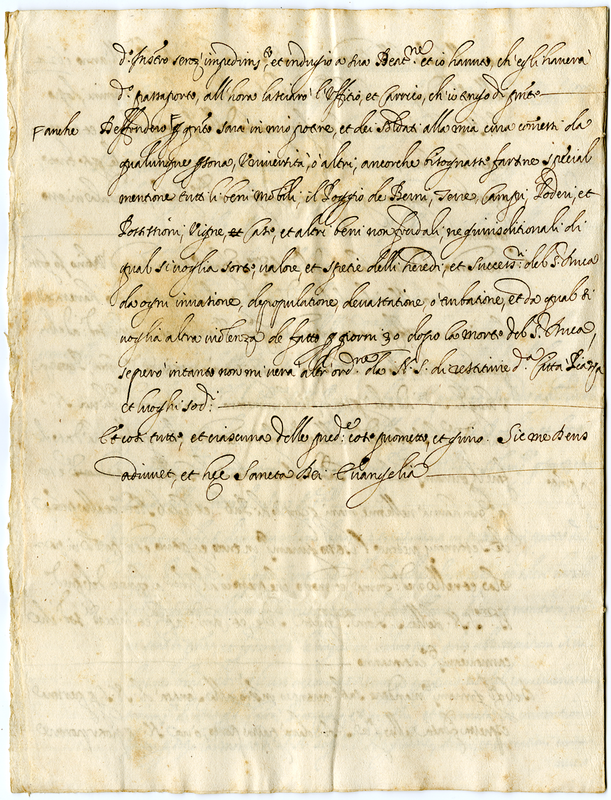 d.º Instro senz' impedim.to, et indugio a sua Beat.ne, et io havuto, ch' egli haverà
d.º passaporto, all' hora lasciarò l' Uffitio, et Carrico, ch' io tengo di pnte
Fanche Deffenderò p qnto sarà in mio potere, et dei soldati alla mia cura comessi da
qualunque psona, Università, o altri, ancorche bisognasse farsine special
mentione tutti li beni mobili, il Poggio de Berni, Terre, Campi, Poderi, et
Possessioni, Vigne, et Case, et altri beni non feudali, ne giurisditionali di
qual si voglia sorte, valore, et spetie delli heredi, et success.ri del S. Duca
da ogni invasione, depopulatione, devastatione, o turbatione, et da qual si
voglia altra violenza de fatto p giorni 30 dopo la morte del S. Duca,
se però intanto non mi verrà altr' ord.ne da N. S. di restituire d.ª Città Piazza
et luoghi sod.i
Et così tutte, et ciascuna delle pred.e cose prometto, et giuro. Sic me Deus
adiuvet, et hęc Sancta Dei Evangelia